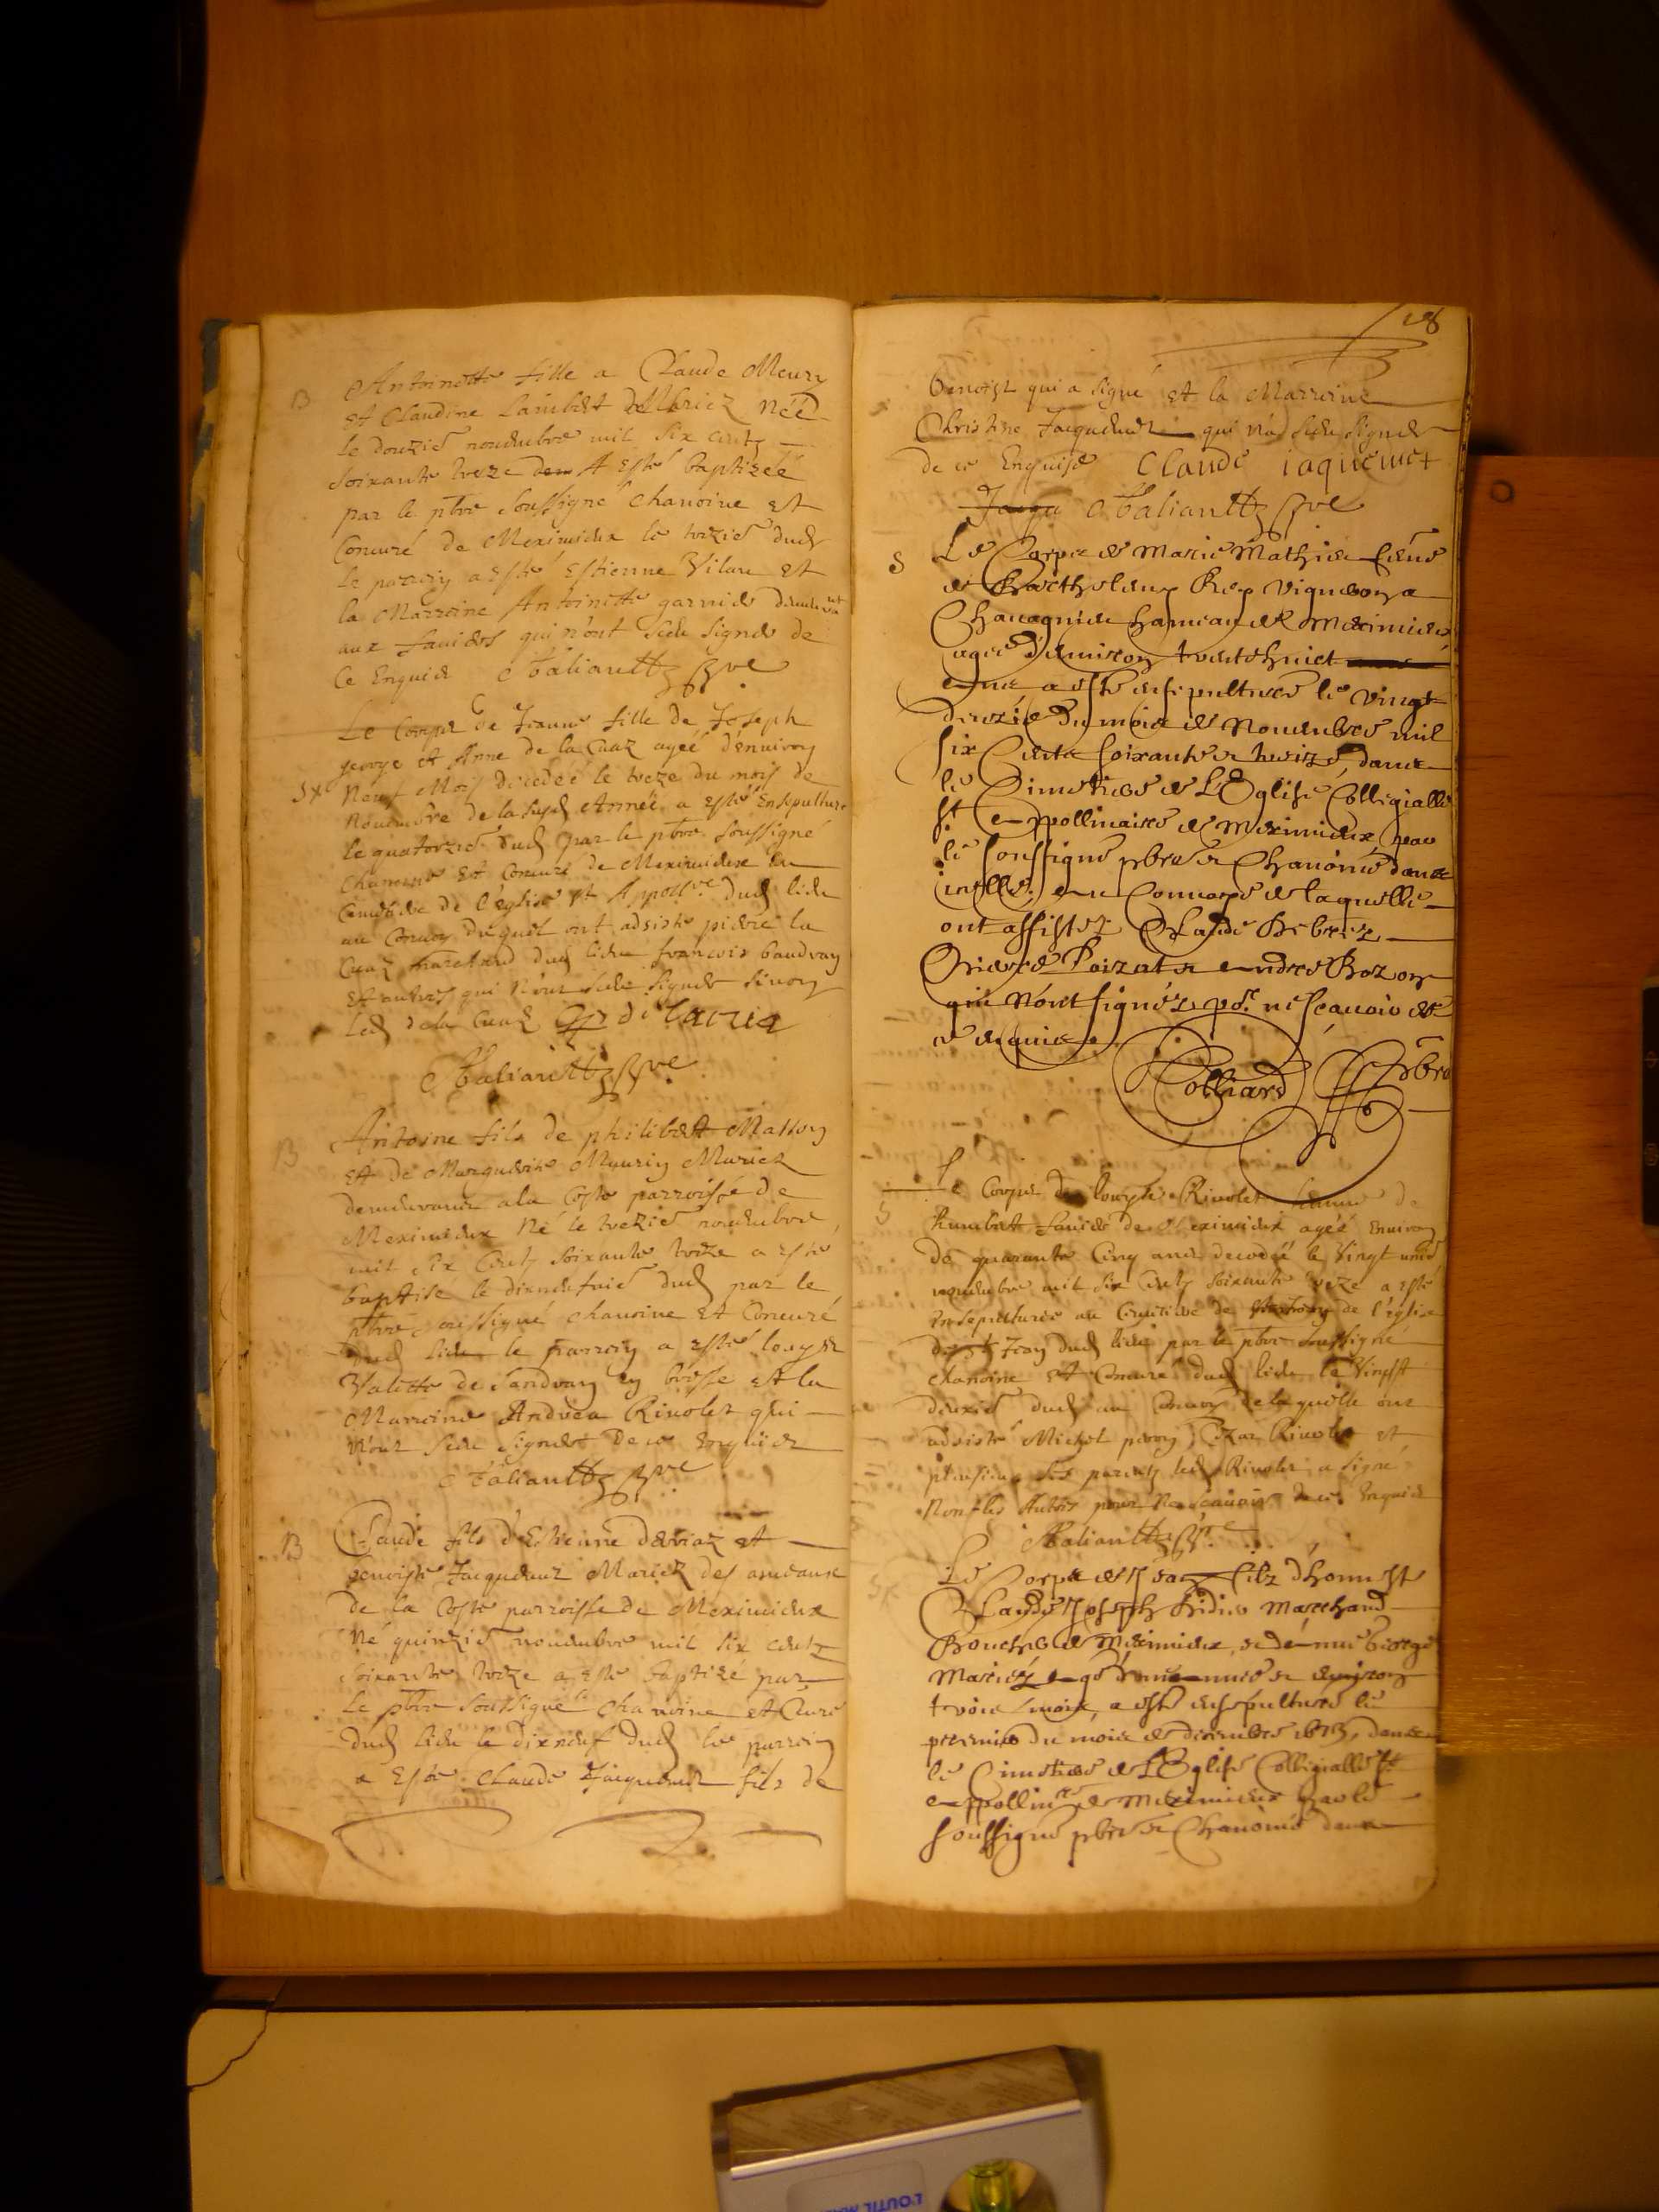 B Antoinette fille a Claude Meury
et Claudine Lambert Mariez Née
le douzie novembre mil six centz
soixante treze A esté baptizée
par le pbre soussigné chanoine et
Concuré de Meximieux le trezie dud
le parrein a esté Estienne Vilare et
la Marreine Antoinette garnier
aux fauries qui n'ont sceu signer de
ce Enquis
Le Corps de Jeanne fille de Joseph
george et Anne de la Cuaz agée d'environ
SX Neuf Mois decedée le treze du mois de
Novembre de la susd Année a esté Ensepulture
le quatorzie dud par le pbre soussigné
Chanoine Et Concuré de Meximieux au
Cemetiere de l'eglise st Appollre dud lieu
au Convoy duquel ont adsisté pierre la
Cuaz marchand dud lieu francois baudray
Et autres qui n'ont sceu signer sinon
Led de la Cuaz
B Antoine fils de philibert Masson
et de Marguerite Meurin Mariez
demeurans a la Coste parroisse de
Meximieux Né le trezie novembre
mil six centz soixante treze a esté
baptisé le dud par le
pbre soussigné chanoine et Concuré
dud lieu le parrein a esté louys
Valette de en bresse et la
Marreine Andrea Rivolet qui
n'ont sceu signer de ce enquis
B Claude fils d'Estienne derriaz et
benoiste Jacquemet Mariez des
de la Coste parroisse de Meximieux
Né quinzie novembre mil six centz
soixante treze a esté baptizé par
le pbre soussigné chanoine et Curé
dud lieu le dixneuf dud le parrein
a esté Claude Jacquemet fils de
benoist qui a signé et la Marreine
Christine Jacquemet qui n'a sceu signer
de ce Enquise Claude iaquemet
S Le Corps de Marie Mathieu feme
de Barthelemy Rey vigneron a
Chavagnieu hameau de Meximieux
agée d'environ trentehuict
ans a esté ensepulturée le vingt
deuzie du mois de Novembre mil
six Centz soixante et treize, dans
le Cimetiere de L'Eglise Collegialle
st Appollinaire de Meximieux par
le soussigné pbre et Chanoine dans
icelle. au Convoye de laquelle
ont assistez Claude
Pierre Poizat et Andre Bozon
qui n'ont signéz pr. ne scavoir de
ce enquis
Colliard pbre
S Le Corps de louyse Rivolet femme de
humbert favier de Meximieux agéé Environ
de quarante Cinq ans decedée le Vingt unie
novembre mil six centz soixante treze a esté
Ensepulturée au Cemetiere de de l'eglise
de st Jean dud lieu par le pbre Soussigné
chanoine et Concuré dud lieu le Vingt
deuxie dud au Convoy de laquelle ont
adsisté Michel Cezar Rivolet et
plusieurs ses parentz led Rivolet a signé
Non les Autres pour Ne scavoir de ce Enquis
SX Le Corps de Jean filz d'honneste
Claude Joseph Marchand
Boucher de Meximieux, et d'
Mariéz agé d'une année et environ
trois mois, a esté ensepulturé le
premier du mois de decembre 1673, dans
le Cimetiere de L'Eglise Collegialle st
Appollinre de Meximieux par le
soussigné pbre et Chanoine dans